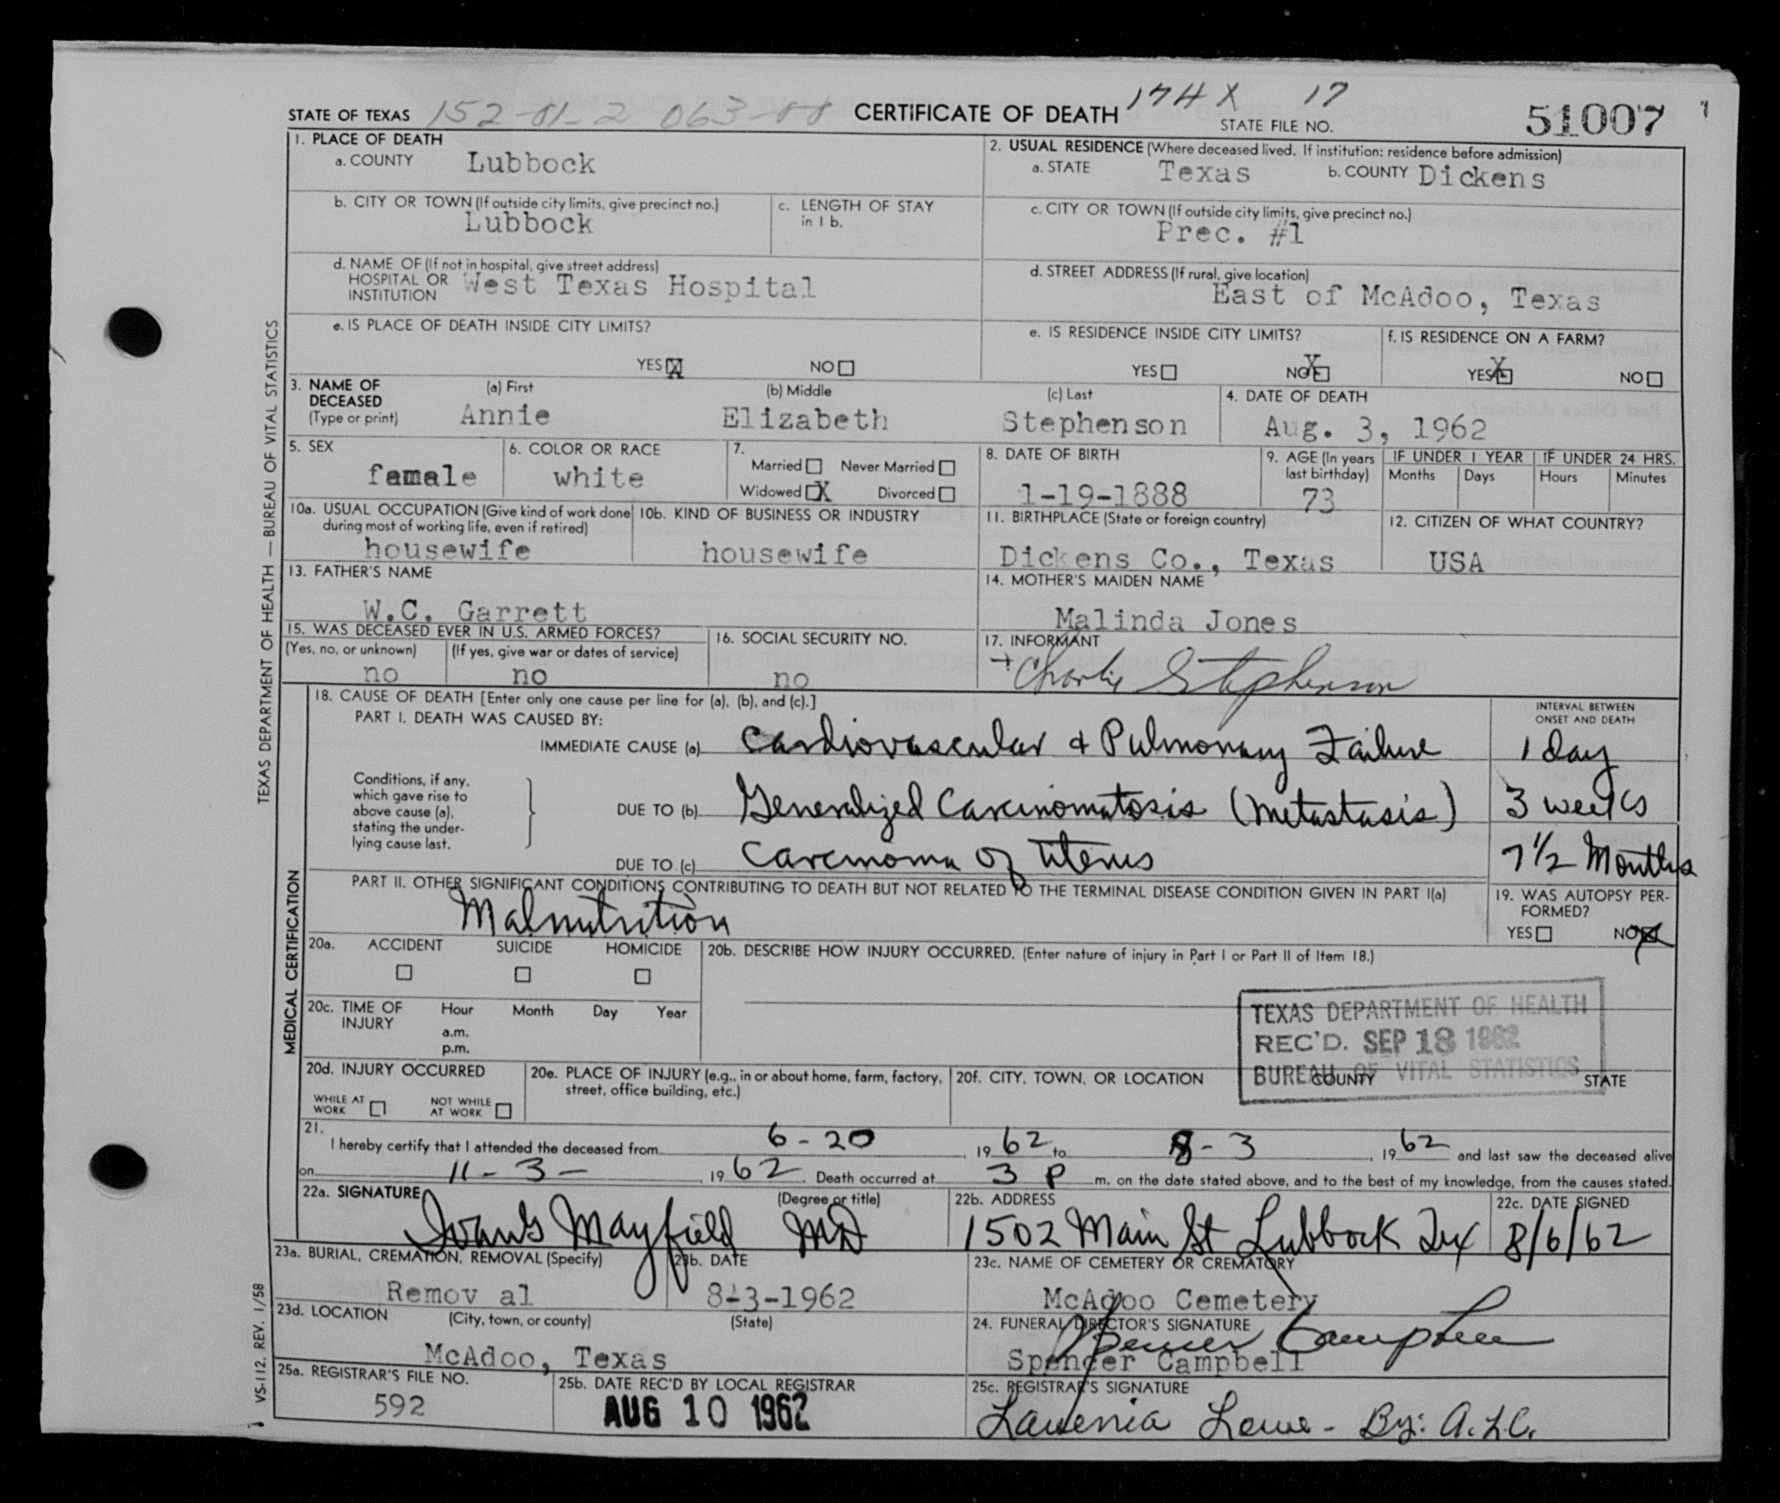 STATE OF TEXAS 152-81-2 063-88 CERTIFICATE OF DEATH 174 X 17 STATE FILE NO. 51007
1. PLACE OF DEATH
a. COUNTY Lubbock
2. USUAL RESIDENCE (Where deceased lived. If institution: residence before admission)
a. STATE Texas b. COUNTY Dickens
b. CITY OR TOWN (If outside city limits, give precinct no.)
Lubbock
c. LENGTH OF STAY
in 1 b.
c. CITY OR TOWN (If outside city limits, give precinct no.)
Prec. #1
d. NAME OF (If not in hospital, give street address)
HOSPITAL OR
INSTITUTION West Texas Hospital
d. STREET ADDRESS (If rural, give location)
East of McAdoo, Texas
e. IS PLACE OF DEATH INSIDE CITY LIMITS?
YES X NO
e. IS RESIDENCE INSIDE CITY LIMITS?
YES NO X
f. IS RESIDENCE ON A FARM?
YES X NO
3. NAME OF
DECEASED
(Type or print)
(a) First (b) Middle (c) Last
Annie Elizabeth Stephenson
4. DATE OF DEATH
Aug. 3, 1962
5. SEX
famale
6. COLOR OR RACE
white
7.
Married Never Married
Widowed X Divorced
8. DATE OF BIRTH
1-19-1888
9. AGE (In years
last birthday)
73
IF UNDER 1 YEAR
Months Days
IF UNDER 24 HRS.
Hours Minutes
10a. USUAL OCCUPATION (Give kind of work done
during most of working life, even if retired)
housewife
10b. KIND OF BUSINESS OR INDUSTRY
housewife
11. BIRTHPLACE (State or foreign country)
Dickens Co., Texas
12. CITIZEN OF WHAT COUNTRY?
USA
13. FATHER'S NAME
W.C. Garrett
14. MOTHER'S MAIDEN NAME
Malinda Jones
15. WAS DECEASED EVER IN U.S. ARMED FORCES?
(Yes, no, or unknown) (If yes, give war or dates of service)
no no
16. SOCIAL SECURITY NO.
no
17. INFORMANT
+ Charlie Stephenson
18. CAUSE OF DEATH [Enter only one cause per line for (a), (b), and (c).]
PART I. DEATH WAS CAUSED BY:
INTERVAL BETWEEN
ONSET AND DEATH
IMMEDIATE CAUSE (a) Cardiovascular & Pulmonary Failure 1 day
Conditions, if any,
which gave rise to
above cause (a),
stating the under-
lying cause last.
DUE TO (b) Generalized Carcinomatosis (Metastasis) 3 weeks
DUE TO (c) Carcinoma of Uterus 7 1/2 Months
PART II. OTHER SIGNIFICANT CONDITIONS CONTRIBUTING TO DEATH BUT NOT RELATED TO THE TERMINAL DISEASE CONDITION GIVEN IN PART I(a)
Malnutrition
19. WAS AUTOPSY PER-
FORMED?
YES NO X
20a. ACCIDENT SUICIDE HOMICIDE
20b. DESCRIBE HOW INJURY OCCURRED. (Enter nature of injury in Part I or Part II of Item 18.)
20c. TIME OF
INJURY
Hour Month Day Year
a.m.
p.m.
TEXAS DEPARTMENT OF HEALTH
REC'D. SEP 18 1962
BUREAU OF VITAL STATISTICS
20d. INJURY OCCURRED
WHILE AT
WORK
NOT WHILE
AT WORK
20e. PLACE OF INJURY (e.g., in or about home, farm, factory,
street, office building, etc.)
20f. CITY, TOWN, OR LOCATION COUNTY STATE
21.
I hereby certify that I attended the deceased from 6-20, 1962 to 8-3, 1962 and last saw the deceased alive
on 11-3-, 1962. Death occurred at 3 P m. on the date stated above, and to the best of my knowledge, from the causes stated.
22a. SIGNATURE (Degree or title)
Mayfield MD
22b. ADDRESS
1502 Main St Lubbock Tex
22c. DATE SIGNED
8/6/62
23a. BURIAL, CREMATION, REMOVAL (Specify)
Remov al
23b. DATE
8-3-1962
23c. NAME OF CEMETERY OR CREMATORY
McAdoo Cemetery
23d. LOCATION (City, town, or county) (State)
McAdoo, Texas
24. FUNERAL DIRECTOR'S SIGNATURE
Spencer Campbell
Spencer Campbell
25a. REGISTRAR'S FILE NO.
592
25b. DATE REC'D BY LOCAL REGISTRAR
AUG 10 1962
25c. REGISTRAR'S SIGNATURE
Lavenia Lowe - By: A.L.C.
TEXAS DEPARTMENT OF HEALTH — BUREAU OF VITAL STATISTICS
MEDICAL CERTIFICATION
VS-112. REV. 1/58